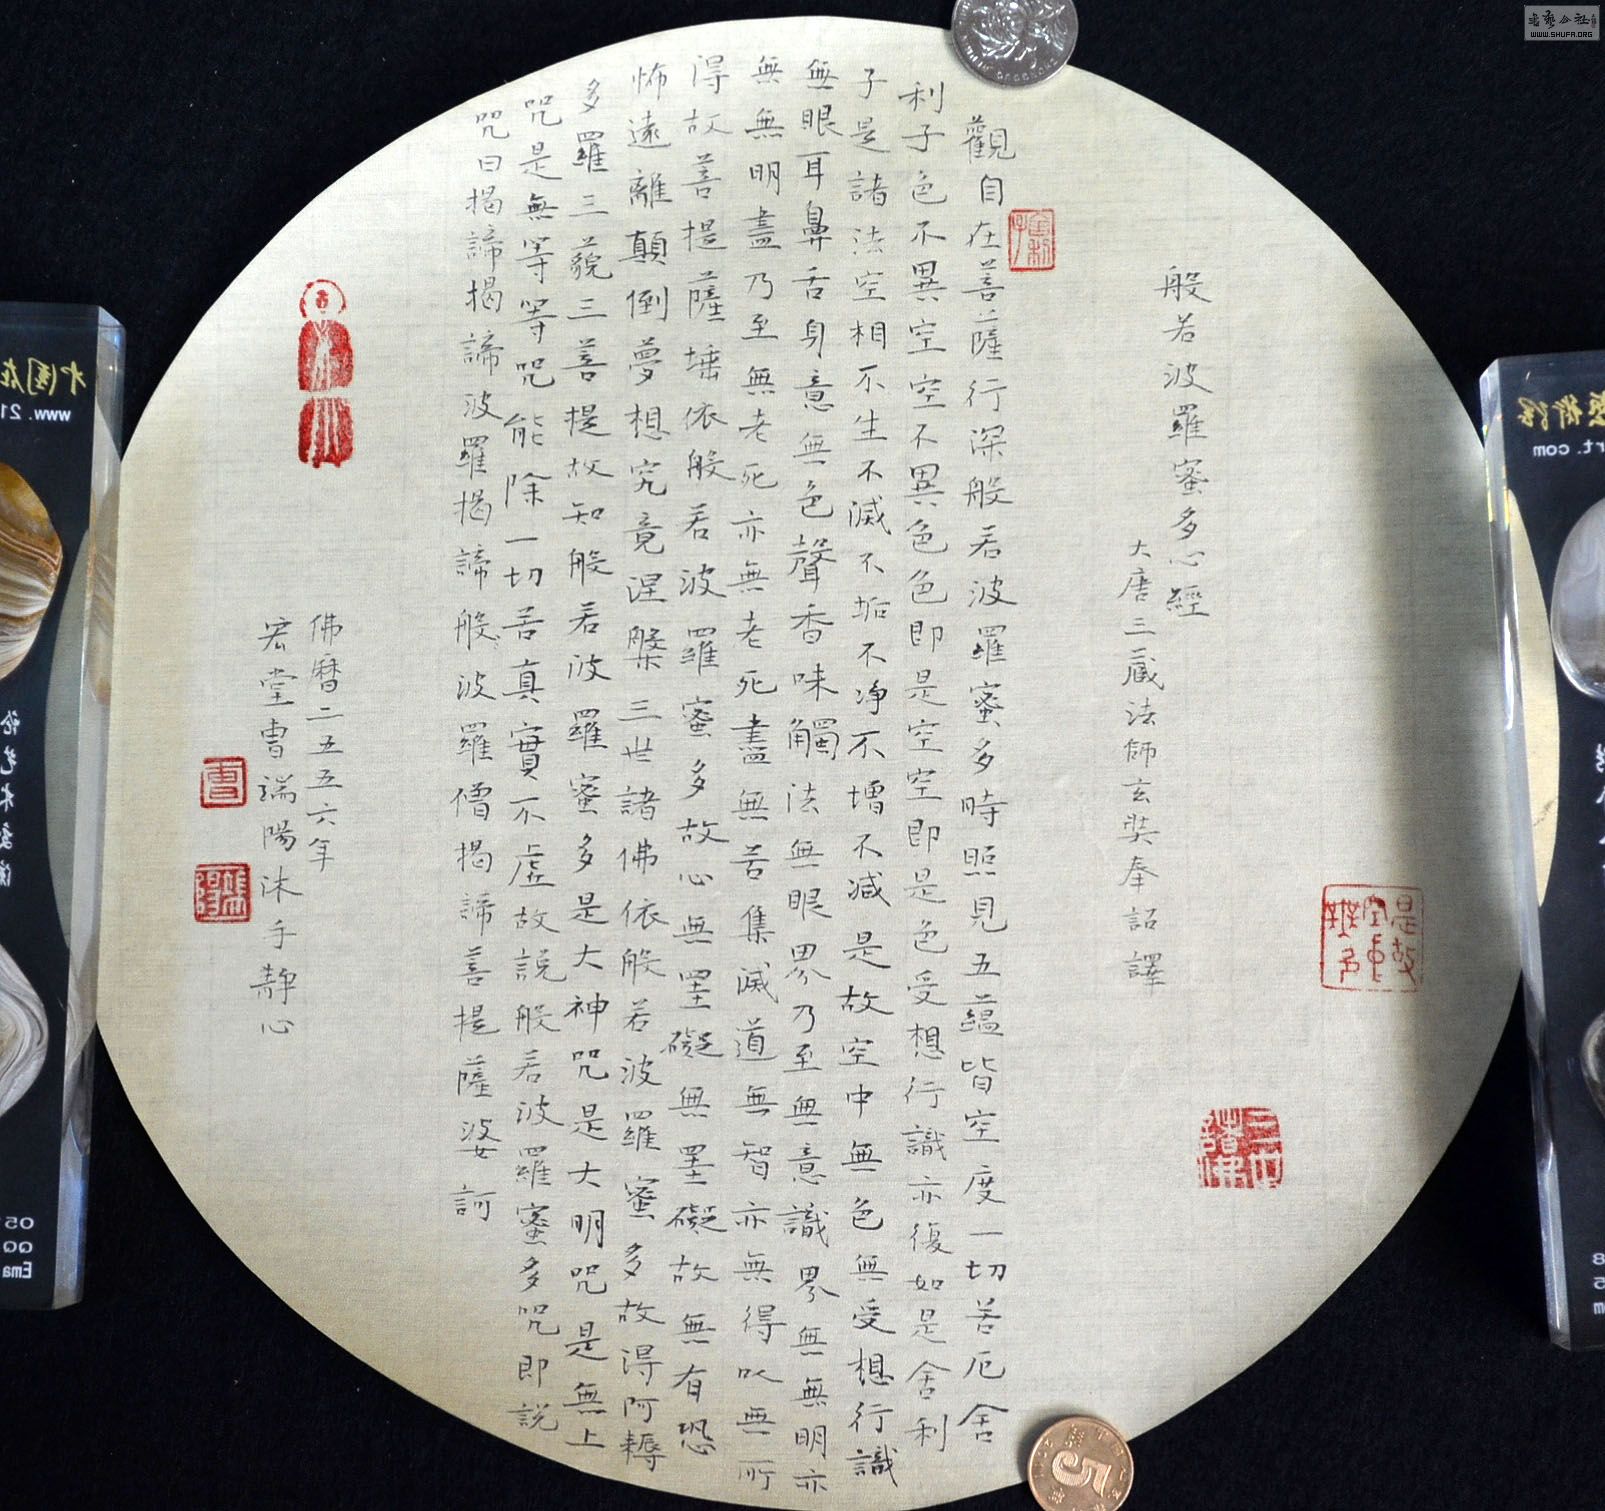 般若波羅蜜多心經
大唐三藏法師玄奘奉詔譯
觀自在菩薩行深般若波羅蜜多時照見五蘊皆空度一切苦厄舍
利子色不異空空不異色色即是空空即是色受想行識亦復如是舍利
子是諸法空相不生不滅不垢不淨不增不減是故空中無色無受想行識
無眼耳鼻舌身意無色聲香味觸法無眼界乃至無意識界無無明亦
無無明盡乃至無老死亦無老死盡無苦集滅道無智亦無得以無所
得故菩提薩埵依般若波羅蜜多故心無罣礙無罣礙故無有恐
怖遠離顛倒夢想究竟涅槃三世諸佛依般若波羅蜜多故得阿耨
多羅三藐三菩提故知般若波羅蜜多是大神咒是大明咒是無上
咒是無等等咒能除一切苦真實不虛故說般若波羅蜜多咒即說
咒曰揭諦揭諦波羅揭諦般波羅僧揭諦菩提薩婆訶
佛曆二五五六年
宏堂曹瑞陽沐手靜心
是故空中無色
三世諸佛
舍利子
曹
瑞陽
5
WWW.SHUFA.ORG